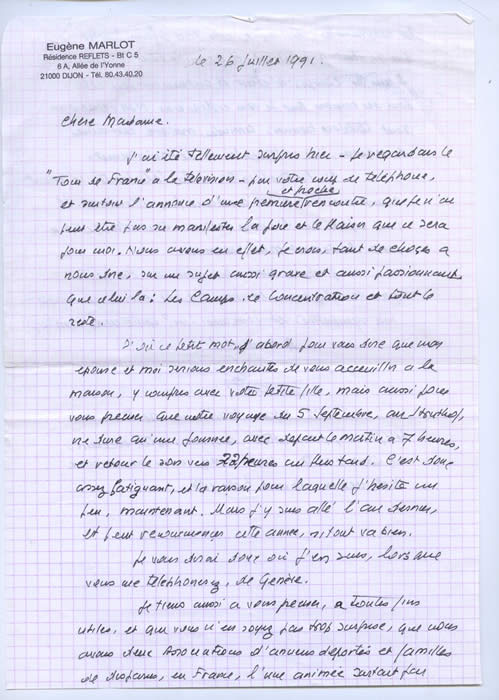 Eugène MARLOT
Résidence REFLETS - Bt C 5
6 A, Allée de l'Yonne
21000 DIJON - Tél. 80.43.40.20
le 26 Juillet 1991.
Chère Madame.
J'ai été tellement surpris hier - Je regardais le
"Tour de France" à la télévision - par votre coup de téléphone,
et proche
et surtout l'annonce d'une première rencontre, que je n'ai
peut être pas su manifester la joie et le plaisir que ce sera
pour moi. Nous avons en effet, je crois, tant de choses à
nous dire, sur un sujet aussi grave et aussi passionnant
que celui là : Les Camps de Concentration et tout le
reste.
D'où ce petit mot, d'abord pour vous dire que mon
épouse et moi serions enchantés de vous accueillir à la
maison, y compris avec votre petite fille, mais aussi pour
vous préciser que notre voyage du 5 Septembre, au Struthof,
ne dure qu'une journée, avec départ le matin à 7 heures,
et retour le soir vers 22 heures ou plus tard. C'est donc
assez fatigant, et la raison pour laquelle j'hésite un
peu, maintenant. Mais j'y suis allé l'an dernier,
et peut recommencer cette année, si tout va bien.
Je vous dirai donc où j'en suis, lorsque
vous me téléphonerez, de Genève.
Je tiens aussi à vous préciser, à toutes fins
utiles, et que vous n'en soyez pas trop surprise, que nous
avons deux Associations d'anciens déportés et familles
de disparus, en France, l'une animée surtout par